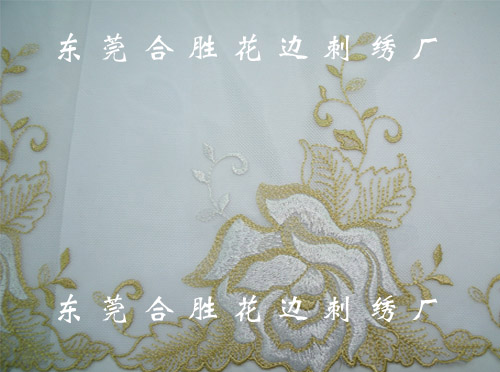 东莞合胜花边刺绣厂
东莞合胜花边刺绣厂